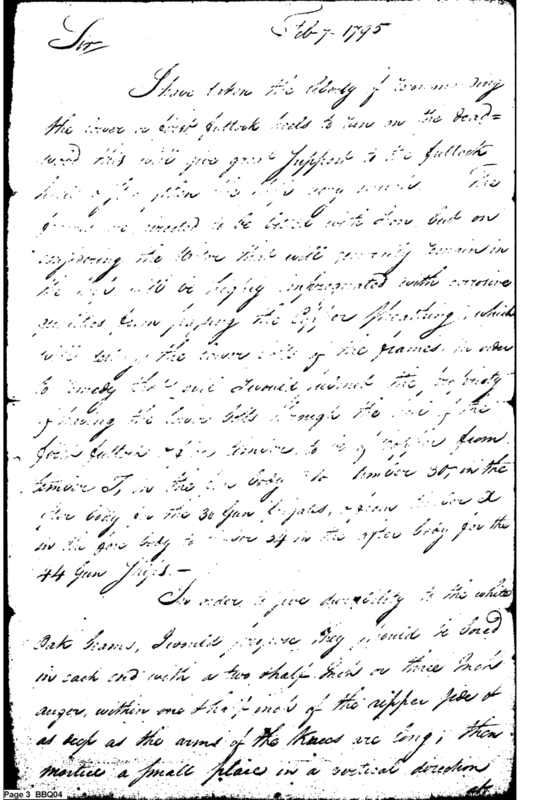 Feb 7 - 1795
Sir
I have taken the liberty of recommending
the lower or first futtock heels to run on the dead=
wood this will give great support to the futtock
the ship very much. The
frames are to be bolted with Iron, but on
considering the Water that will generally remain in
the ship will be highly impregnated with corrosive
qualities from passing the Copper Sheathing, which
will the lower bolts of the frames, in order
to remedy that evil I would submit the propriety
of having the lower bolts through the of the
first futtock & timber, to be of copper from
timber T, in the fore body to timber 30, in the
after body for the 36 Gun frigates, & from timber X
in the fore body to timber 34 in the after body for the
44 Gun Ships. -
In order to give durability to the white
Oak beams, I would propose they should be bored
in each end with a two & half Inch or three Inch
auger, within one & half inch of the upper side &
as deep as the arms of the Knees are long; then
mortice a small place in a vertical direction
Page 3 BBQ04